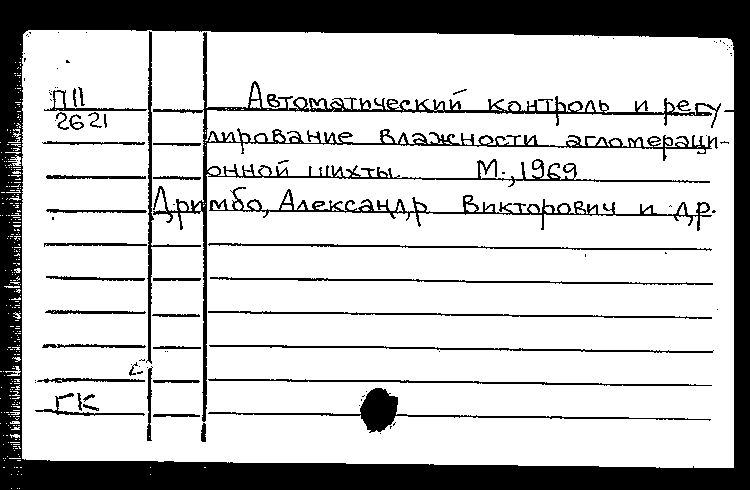 П11
2621
Автоматический контроль и регу-
лирование влажности агломераци-
онной шихты. М., 1969
Дримбо, Александр Викторович и др.
ГК